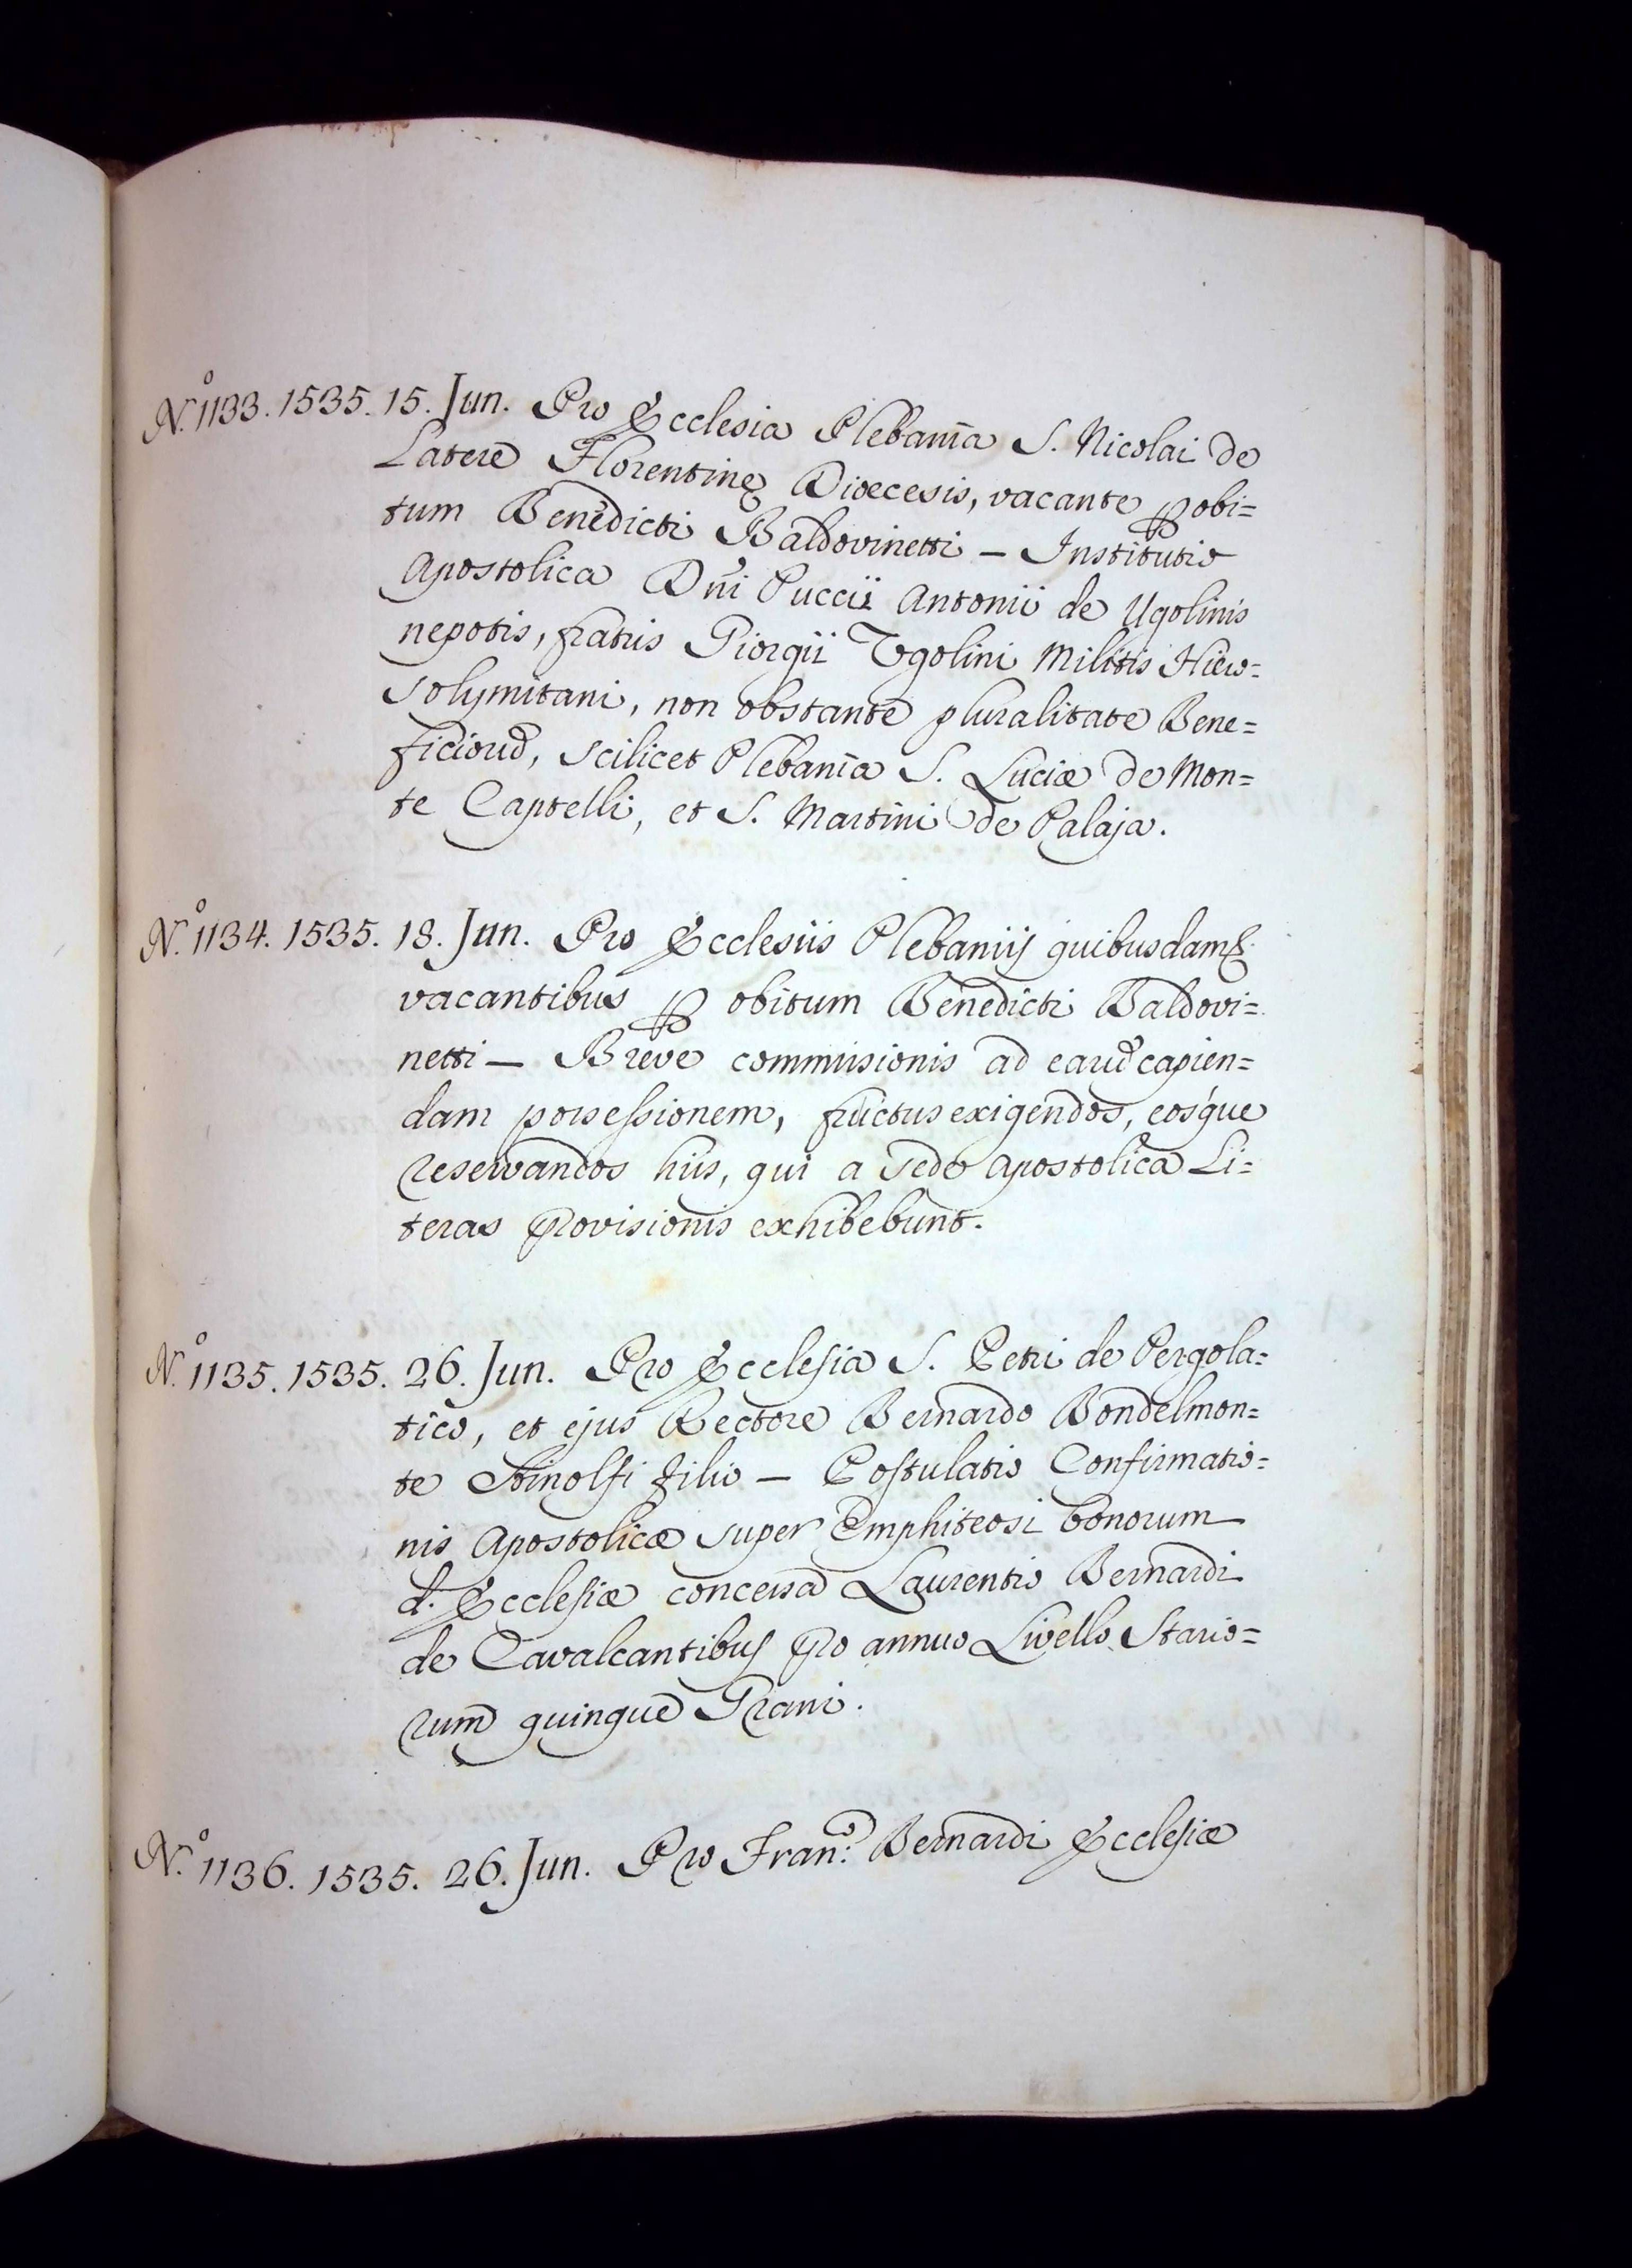 N.º 1133. 1535. 15. Jun. Pro Ecclesia Plebania S. Nicolai de
Latere Florentinę Diœcesis, vacante ꝑ obi=
tum Benedicti Baldovinetti – Institutio
Apostolica Dñi Puccii Antonii de Ugolinis
nepotis, fratris Giorgii Ugolini Militis Hiero=
solymitani, non obstante pluralitate Bene=
ficiorũ, scilicet Plebania S. Luciæ de Mon=
te Captelli, et S. Martini de Palaja.
N.º 1134. 1535. 18. Jun. Pro Ecclesiis Plebaniis quibusdam
vacantibus ꝑ obitum Benedicti Baldovi=
netti – Breve commissionis ad earũ capien=
dam possessionem, fructus exigendos, eosque
reservandos hiis, qui a Sede Apostolica Li=
teras Provisionis exhibebunt.
N.º 1135. 1535. 26. Jun. Pro Ecclesia S. Petri de Pergola=
tico, et ejus Rectore Bernardo Bondelmon=
te Stinolfi filio – Postulatio Confirmatio=
nis Apostolicæ super Emphiteosi bonorum
d. Ecclesiæ concessa Laurentio Bernardi
de Cavalcantibus pro annuo Livello Stario=
rum quinque Grani.
N.º 1136. 1535. 26. Jun. Pro Fran.º Bernardi Ecclesiæ